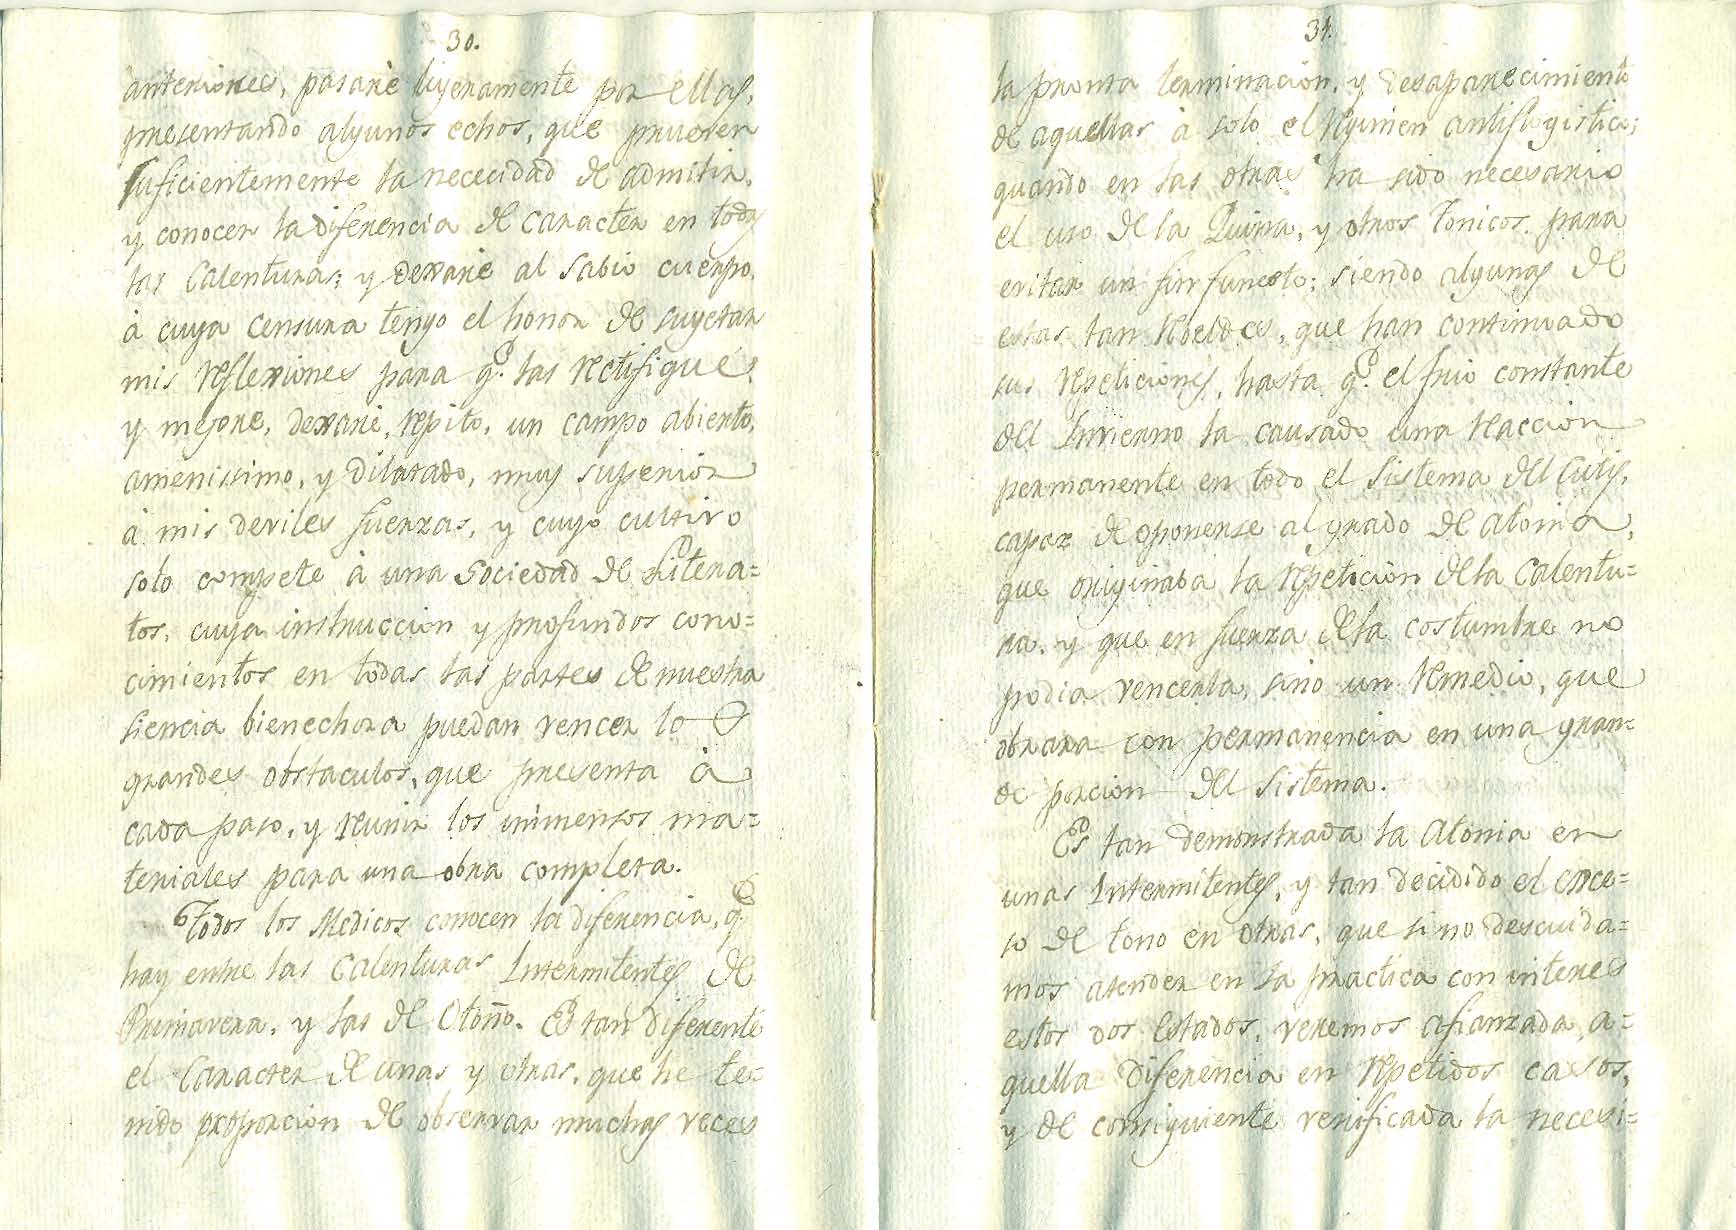 30.
anteriores, pasarè lijeramente por ellas,
presentando algunos echos, que prueven
suficientemente la nececidad de admitir,
y conocer la diferencia de caracter en todas
las Calenturas; y dexarè al Sabio cuerpo,
à cuya censura tengo el honor de sugetar
mis reflexiones para q.e las rectifique,
y mejore, dexarè, repito, un campo abierto,
amenissimo, y dilatado, muy superior
à mis deviles fuerzas, y cuyo cultivo
solo compete à una Sociedad de Litera=
tos, cuya instruccion y profundos cono=
cimientos en todas las partes de nuestra
siencia bienechora puedan vencer los
grandes obstaculos, que presenta à
cada paso, y reunir los inmensos ma=
teriales para una obra completa.
Todos los Medicos conocen la diferencia, q.e
hay entre las Calenturas Intermitentes de
Primavera, y las de Otoño. Es tan diferente
el Caracter de unas y otras, que he te=
nido proporcion de observar muchas veces
31.
la pronta terminacion, y desaparecimiento
de aquellas à solo el regimen antiflogistico;
quando en las otras ha sido necesario
el uso de la Quina, y otros Tonicos para
evitar un fin funesto; siendo algunas de
estas tan rebeldes, que han continuado
sus repeticiones, hasta q.e el frio constante
del Invierno ha causado una reaccion
permanente en todo el Sistema del Cutis,
capaz de oponerse al grado de atonia,
que originaba la repeticion de la Calentu=
ra, y que en fuerza de la costumbre no
podia vencerla, sino un remedio, que
obrara con permanencia en una gran=
de porcion del Sistema.
Es tan demonstrada la Atonia en
unas Intermitentes, y tan decidido el exce=
so de tono en otras, que si no descuida=
mos atender en la practica con interes
estos dos Estados, veremos afianzada a=
quella diferencia en repetidos casos,
y de consiguiente verificada la necesi=